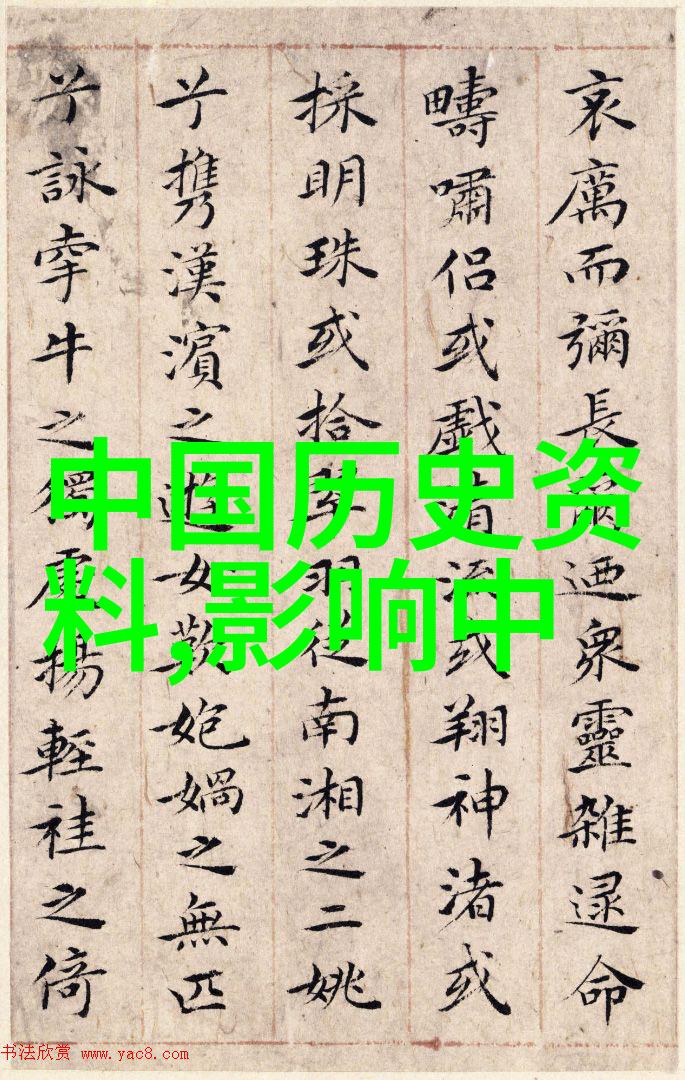 哀厲而彌長爾迺衆靈雜遝命
疇嘯侣或戲清流或翔神渚或
採明珠或拾翠羽從南湘之二姚
兮携漢濱之遊女歎媧之無匹
兮詠牽牛之獨處揚輕袿之倚
中国历史资
料,影响中
书法欣赏 www.yac8.com